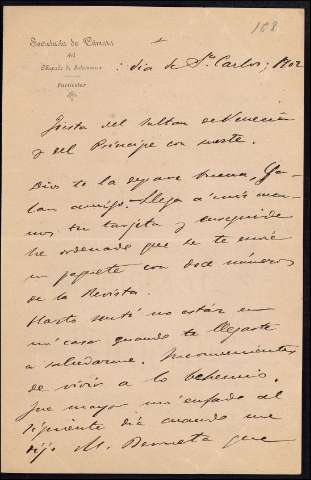 188
Secretaría de Cámara
del
Obispado de Salamanca
Particular
+
: día de Sn. Carlos; 1902
Fiesta del Sultán de
y del Príncipe con suerte.
Dios te la depare buena,
amigo. Llega á mis ma-
nos tu tarjeta y enseguida
he ordenado que se te envíe
un paquete con doce números
de la Revista.
Harto sentí no estár en
mi casa quando tu llegaste
a saludarme. Inconvenientes
de vivir a lo bohemio.
Fue mayor mi enfado al
siguiente día cuando me
dijo M. que